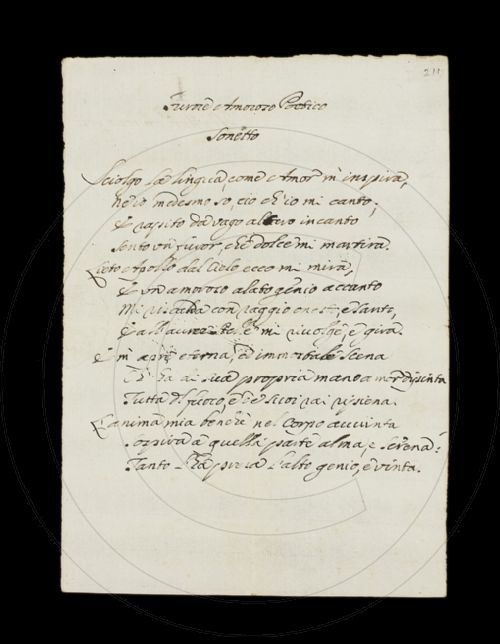 211
Furore Amoroso Poetico
Sonetto
Sciolgo la lingua, come Amor m'inspira,
Ne io medesmo so, cio ch'io mi canto;
E rapito da vago altero incanto
Sento un furor, che dolce mi martira.
Lieto Apollo dal Cielo ecco mi mira,
E un amoroso alato genio accanto
Mi riscalda con raggio onesto, e santo,
E all'aurea mi rivolge, e gira.
E m'apre eterna, ed immortale Scena
di sua propria mano
Tutta di fuoco, e di
L'anima mia benche nel Corpo avvinta
a quella parte alma, e serena:
Tanto l'alto genio, e vinta.